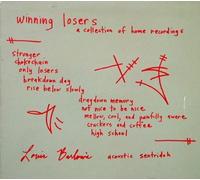 winning losers
a collection of home recordings
stronger
shokechain
only losers
breakdown day
rise below slowly
dragdown memory
not nice to be nice
mellow, cool, and painfully aware
crackers and coffee
high school
Louie Barlow's
acoustic sentridoh